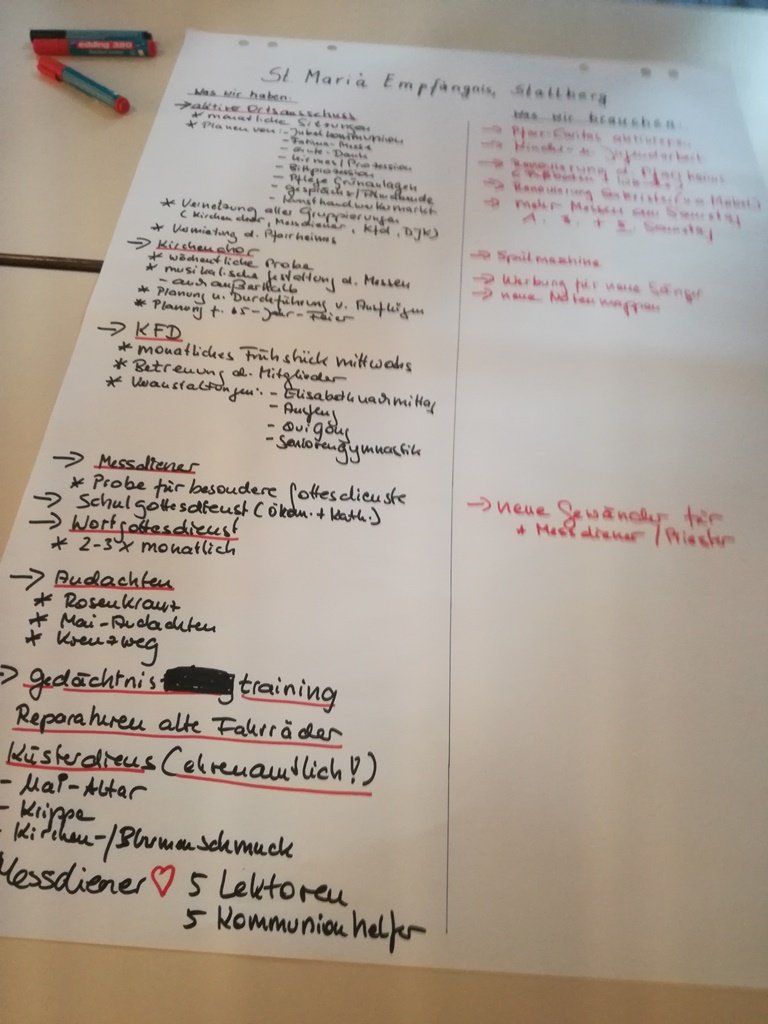 edding 380
St. Mariä Empfängnis, Stallberg
Was wir haben:
→ aktive Ortsausschuss
* monatliche Sitzungen
* Planen von: - Jubelkommunion
- Fatima-Messe
- Ernte-Dank
- Kirmes/Prozession
- Bittprozession
- Pflege Grünanlagen
- Gespräche/
- Kunsthandwerkermarkt
* Vernetzung aller Gruppierungen
(Kirchenchor, Messdiener, Kfd, DJK)
* Vermietung d. Pfarrheimes
→ Kirchenchor
* wöchentliche Probe
* musikalische Gestaltung d. Messen
- auch außerhalb
* Planung u. Durchführung v. Ausflügen
* Planung f. 65-Jahr-Feier
→ KFD
* monatliches Frühstück mittwochs
* Betreuung d. Mitglieder
* Veranstaltungen: - Elisabethnarmittag
- Ausflug
- Qui Gong
- Seniorengymnastik
→ Messdiener
* Probe für besondere Gottesdienste
→ Schulgottesdienst (ökum. + kath.)
→ Wortgottesdienst
* 2-3 x monatlich
→ Andachten
* Rosenkranz
* Mai-Andachten
* Kreuzweg
→ Gedächtnis training
Reparaturen alte Fahrräder
Küsterdiens (ehrenamtlich!)
- Mai-Altar
- Krippe
- Kirchen-/Blumenschmuck
Messdiener ♡ 5 Lektoren
5 Kommunionhelfer
Was wir brauchen:
→ Pfarr-Caritas aktivieren
→ Kinder- u. Jugendarbeit
→ Renovierung d. Pfarrheims
→ Renovierung Sakristei
→ mehr Messen am Samstag
1. 3. + 5. Samstag
→ Spülmaschine
→ Werbung für neue Sänger
→ neue Notenmappen
→ neue Gewänder für
* Messdiener / Priester